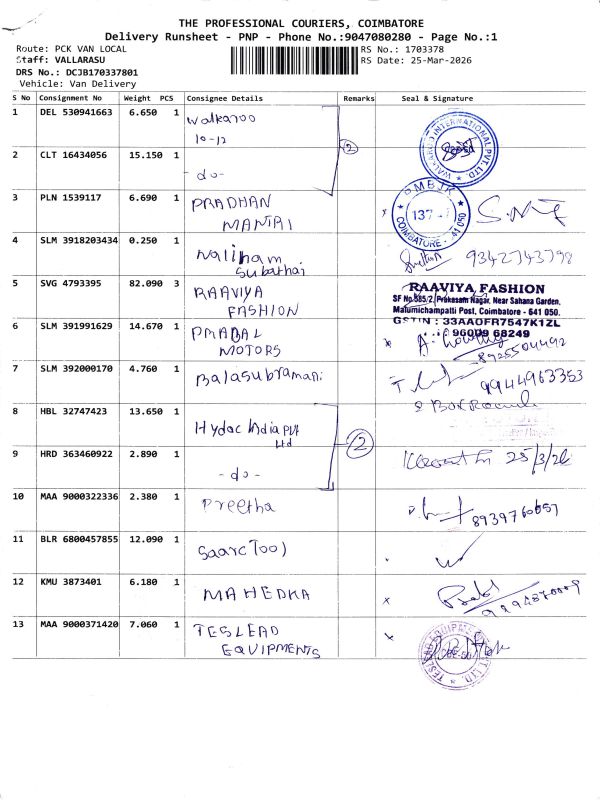 THE PROFESSIONAL COURIERS, COIMBATORE
Delivery Runsheet - PNP - Phone No.:9047080280 - Page No.:1
Route: PCK VAN LOCAL
RS No.: 1703378
Staff: VALLARASU
RS Date: 25-Mar-2026
DRS No.: DCJB170337801
Vehicle: Van Delivery
S No Consignment No Weight PCS Consignee Details Remarks Seal & Signature
1 DEL 530941663 6.650 1 Walkaroo
10-12
2
WALKAROO INTERNATIONAL PVT. LTD.
2 CLT 16434056 15.150 1 - do -
3 PLN 1539117 6.690 1 PRADHAN
MANTRI
PMBJK
137
COIMBATORE - 41 050
4 SLM 3918203434 0.250 1 Nalinam
Subathai
9342743798
5 SVG 4793395 82.090 3 RAAVIYA
FASHION
RAAVIYA FASHION
SF No.585/2, Prakasam Nagar, Near Sahana Garden,
Malumichampatti Post, Coimbatore - 641 050.
GSTIN : 33AAOFR7547K1ZL
96009 68249
6 SLM 391991629 14.670 1 PMABAL
MOTORS
8925504492
7 SLM 392000170 4.760 1 Balasubramani
9944963353
8 HBL 32747423 13.650 1 Hydac India Pvt
Ltd
2
9 HRD 363460922 2.890 1 - do -
25/3/26
10 MAA 9000322336 2.380 1 Preetha
8939760657
11 BLR 6800457855 12.090 1 Saarc Tool
12 KMU 3873401 6.180 1 MAHEDRA
x
9994870009
13 MAA 9000371420 7.060 1 TESLEAD
EQUIPMENTS
TESLEAD EQUIPMENTS PVT. LTD.